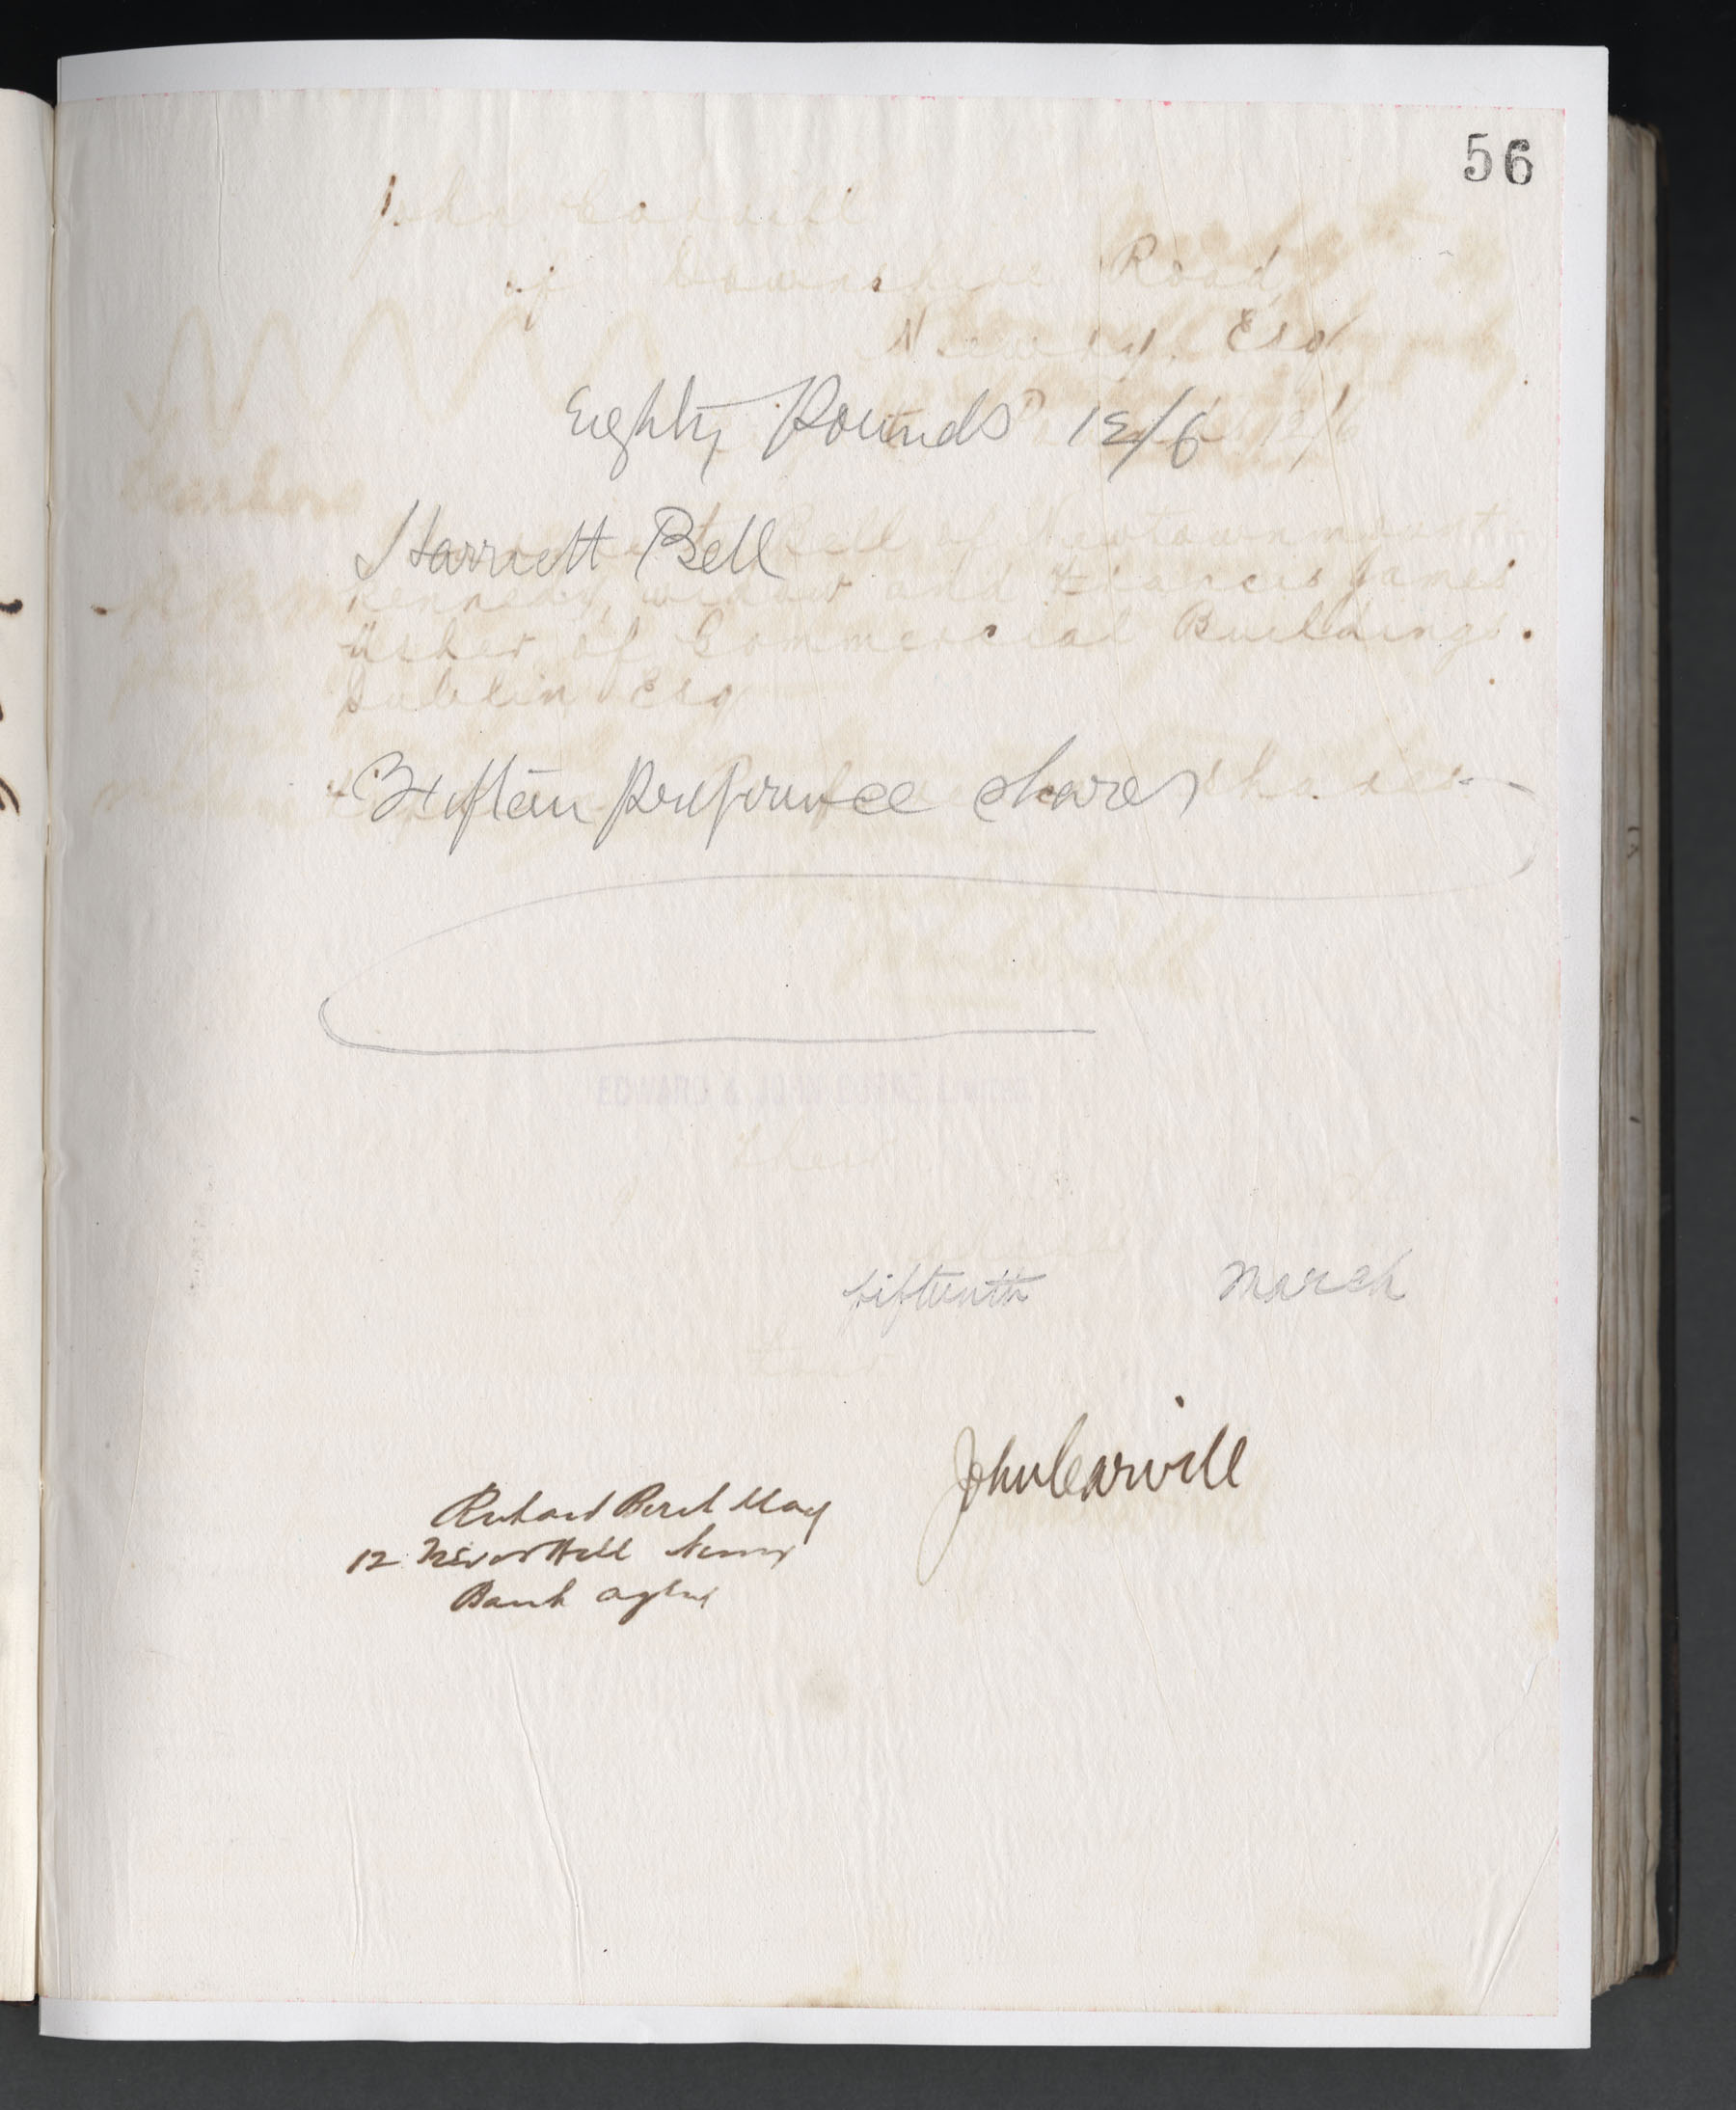 56
John Carvill
of Downshire Road
Newry. Esq
Eighty Pounds 12/6 12/6
Harriett Bell Bell of Newtownmount
Kennedy, widow and Francis James
Usher of Commercial Buildings.
Dublin Esq
Fifteen preference shares shares
EDWARD & JOHN BURKE LIMITED
their
fifteenth March
two
John Carvill
Richard Berch May
12 Trevor Hill Newry
Bank agent